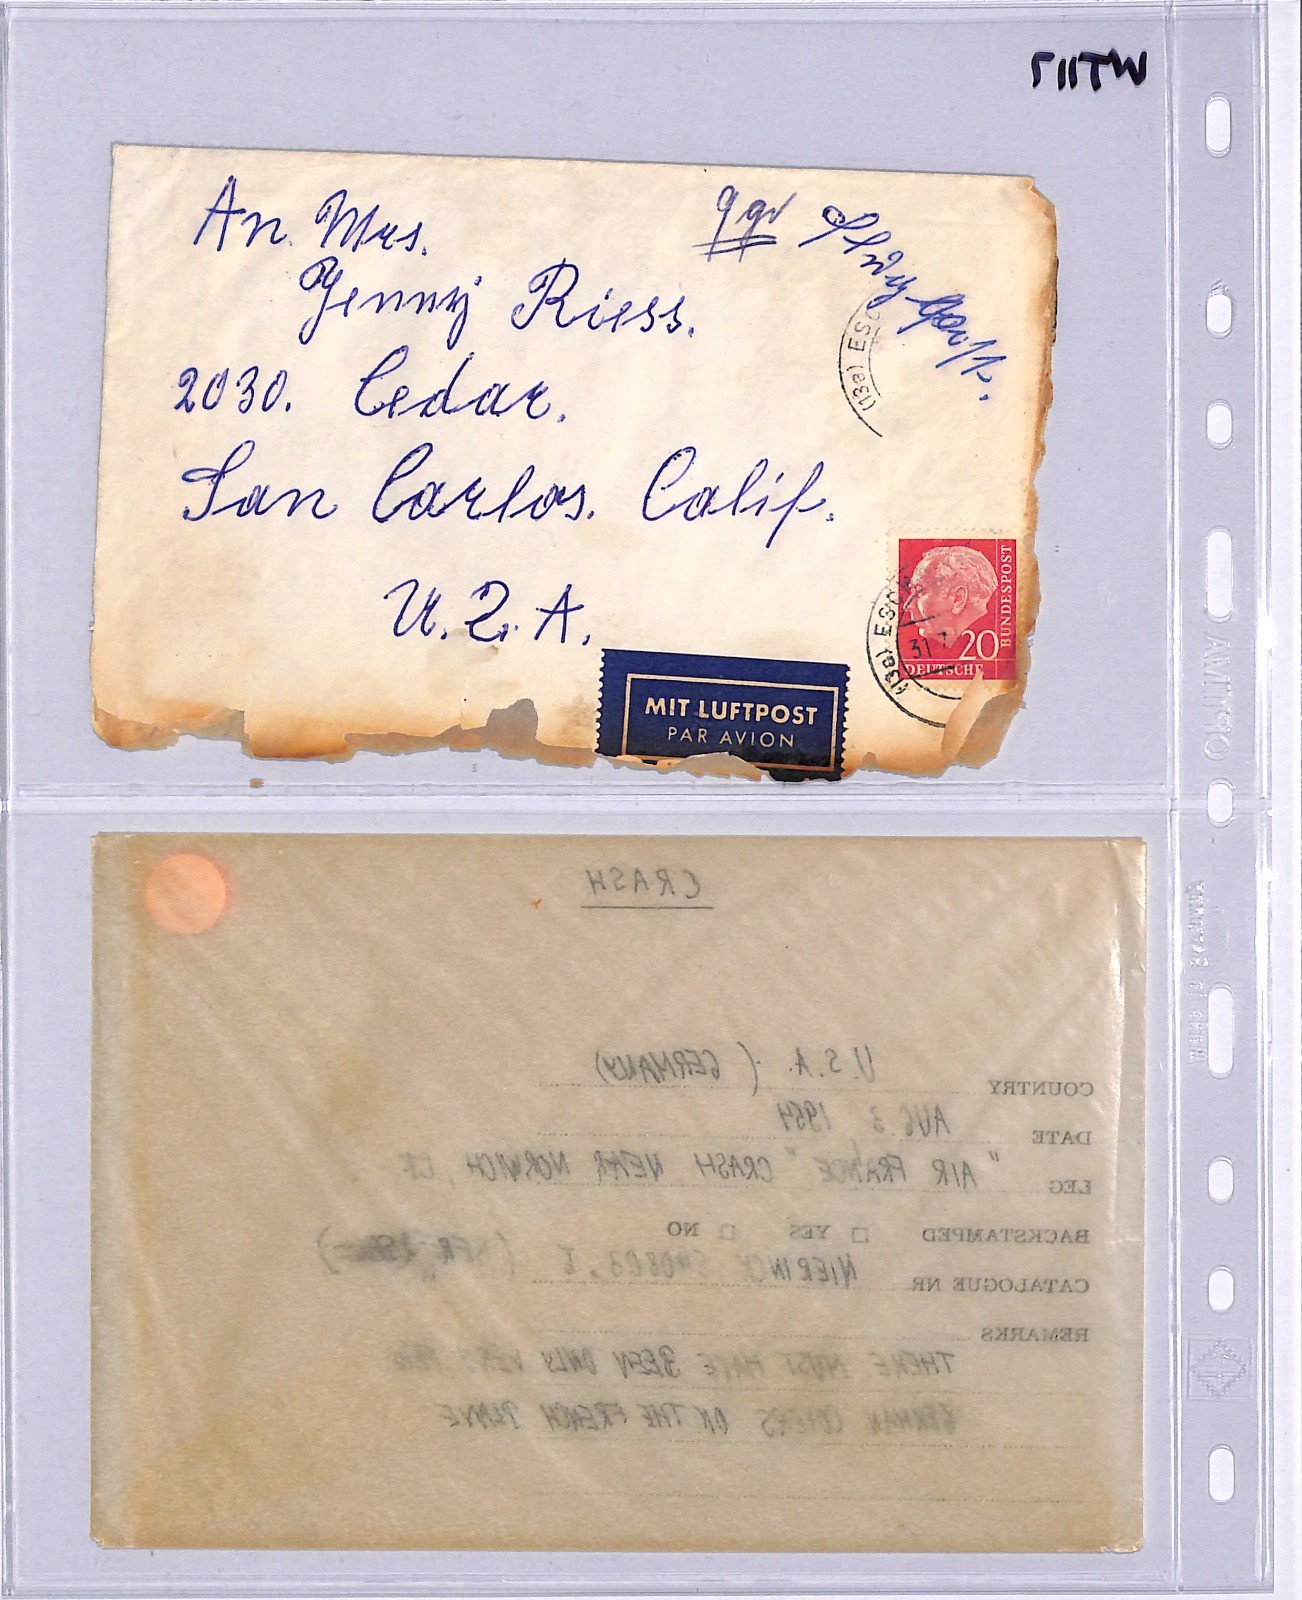 An Mrs.
Jenny Riess.
2030. Cedar.
San Carlos. Calif.
U.S.A.
9 gr
(13a) ESC
(13a) ESC
31 7
20
DEUTSCHE
BUNDESPOST
MIT LUFTPOST
PAR AVION
CRASH
COUNTRY U.S.A. (GERMANY)
DATE AUG 3 1954
LEG "AIR FRANCE" CRASH NEAR NORWICH, CT
BACKSTAMPED YES NO
CATALOGUE NR NIERINCK 540803
REMARKS
THERE MUST HAVE BEEN ONLY VERY FEW
GERMAN COVERS ON THE FRENCH PLANE